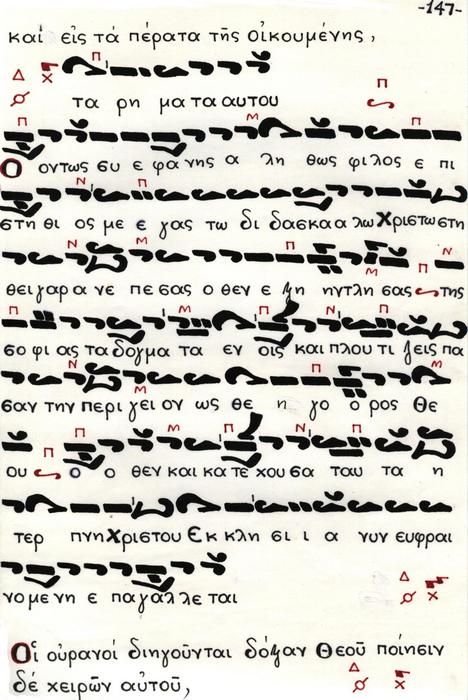 -147-
καί εἰς τά πέρατα τῆς οἰκουμένης,
τα ρη μα τα αυτου
Ο οντως ευ ε φα νης α λη θως φιλος ε πι
στη θι ος με ε γας τω δι δασκα α λω Χριστω στη
θει γαρ α νε πε σας ο θεν ε ζη ηντλη σας της
σο φι ας τα δογμα τα εν οις και πλου τι ζεις πα
σαν την περι γει ον ως θε η γο ο ρος Θε
ου ο ο θεν και κα τε χου σα ταυ τα η
τερ πνη Χριστου Εκ κλη σι ι α νυν ευφραι
νο με νη ε παγαλλε ται
Οἱ οὐρανοί διηγοῦνται δόξαν Θεοῦ ποίησιν
δέ χειρῶν αὐτοῦ,